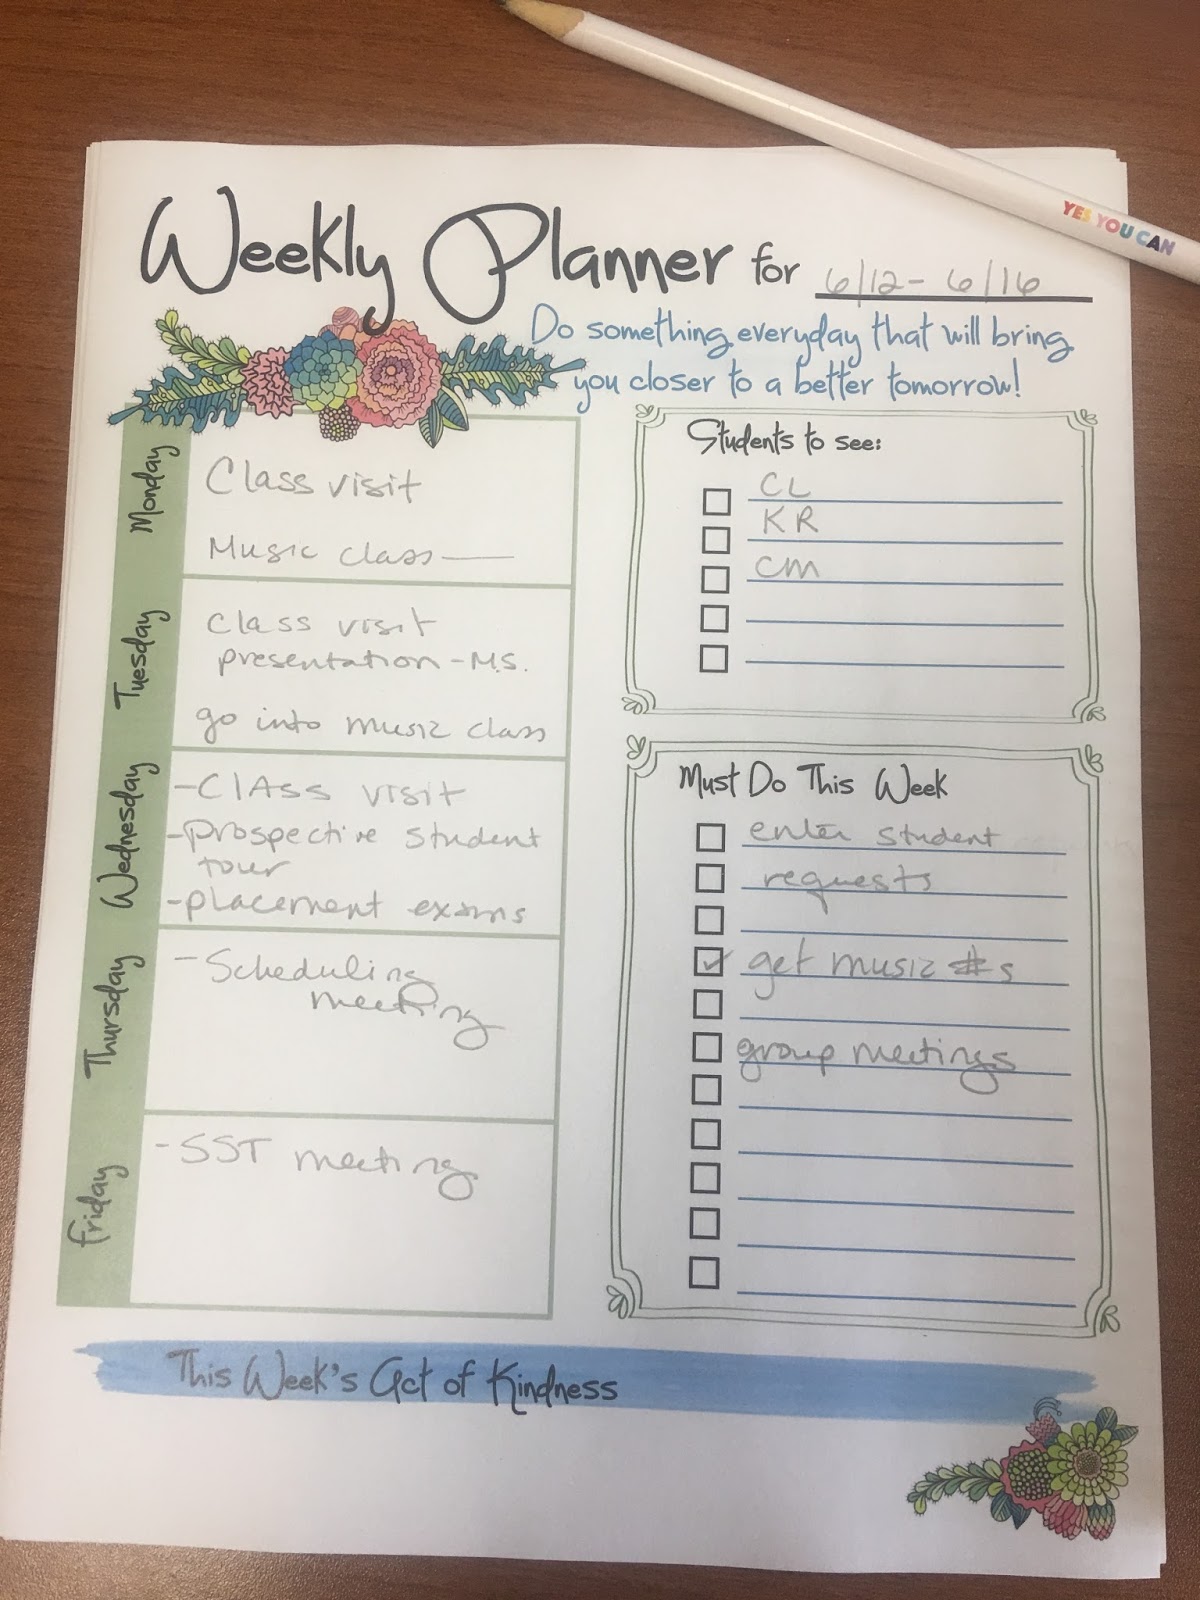 YES YOU CAN
Weekly Planner for 6/12 - 6/16
Do something everyday that will bring
you closer to a better tomorrow!
Monday
Class visit
Music class —
Tuesday
class visit
presentation - M.S.
go into music class
Wednesday
- ClAss visit
- prospective student
tour
- placement exams
Thursday
- Scheduling
meeting
Friday
- SST meeting
Students to see:
CL
KR
CM
Must Do This Week
enter student
requests
get music #s
group meetings
This Week's Act of Kindness